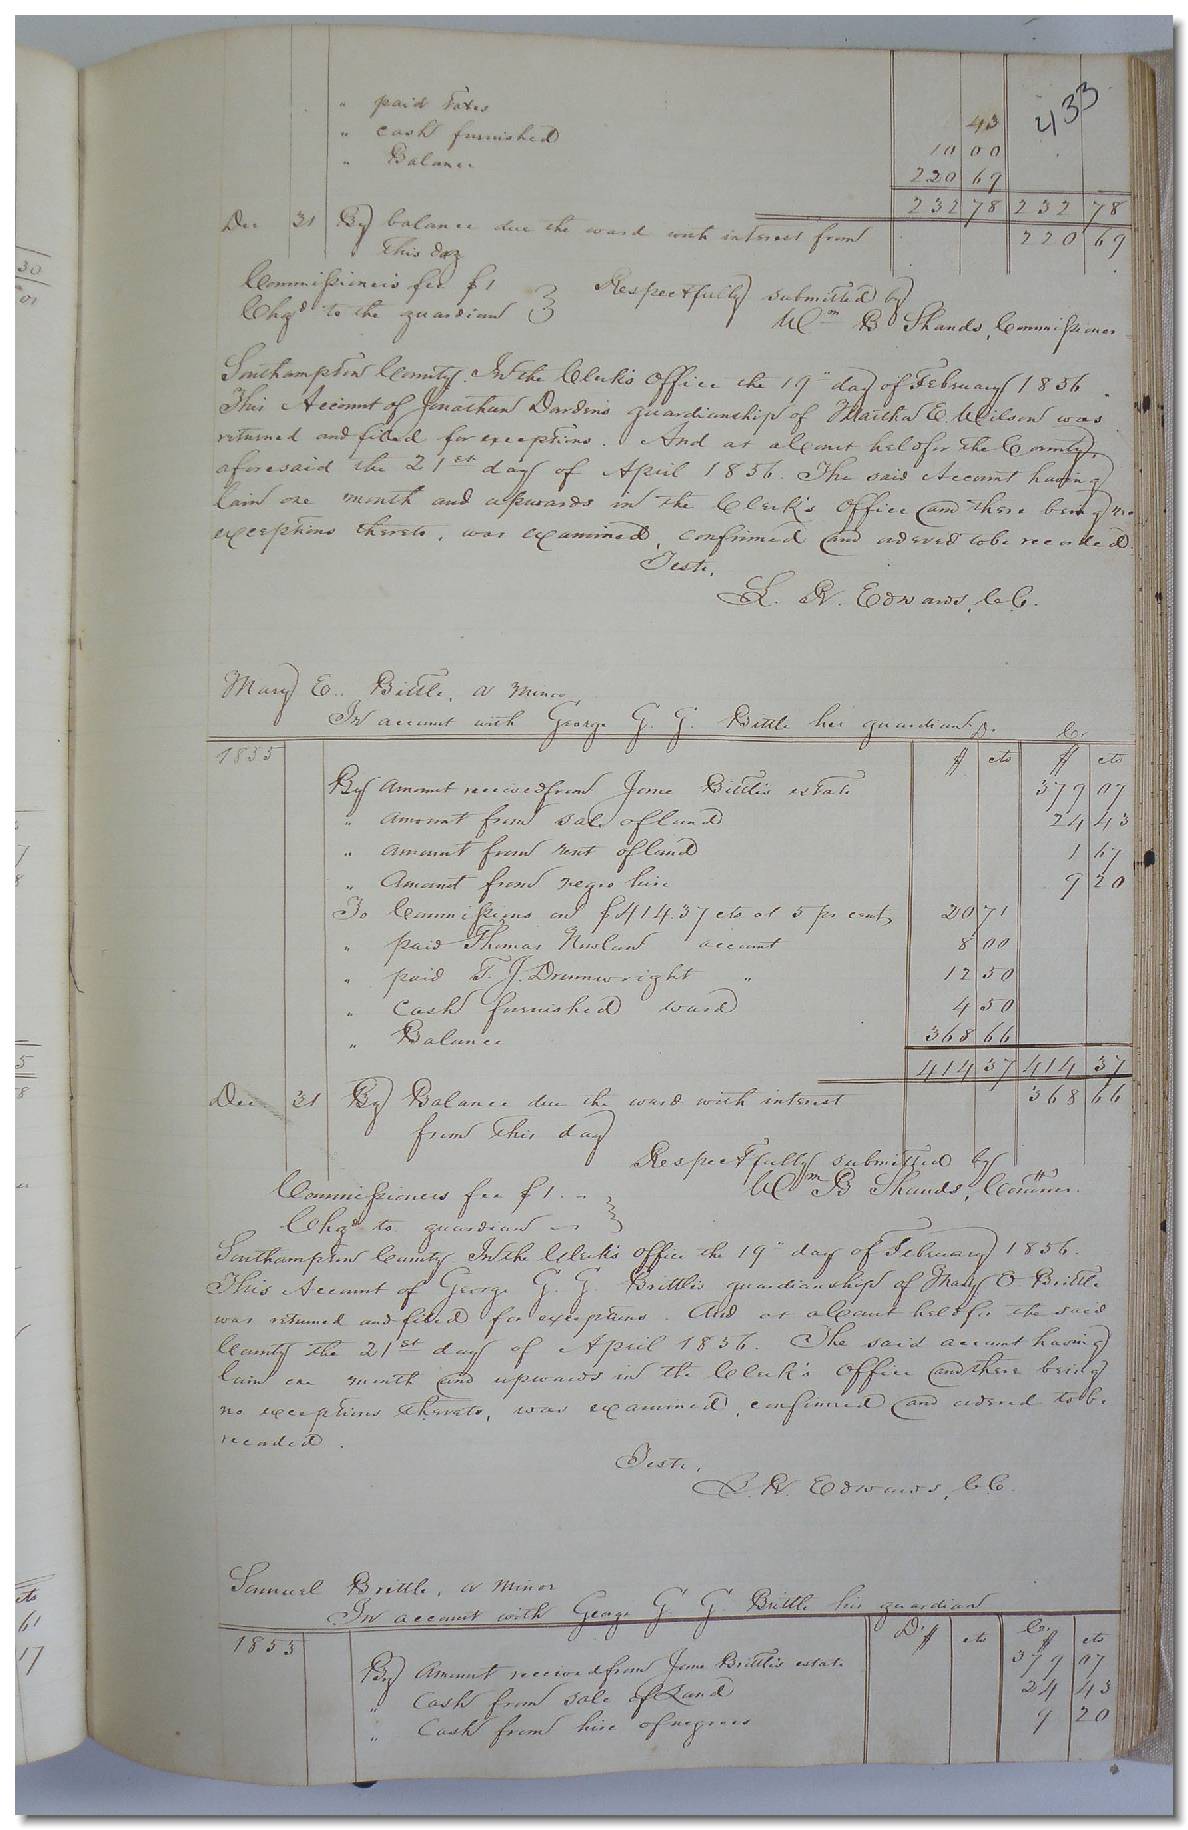 433
" paid Taxes 43
" cash furnished 10 00
" Balance 220 69
232 78 232 78
Dec 31 By balance due the ward with interest from 220 69
this day
Commissioners fee $1
Chgd to the guardian
Respectfully submitted by
Wm B Shands, Commissioner
Southampton County. In the Clerk's Office the 19" day of February 1856.
This Account of Jonathan Darden's guardianship of Martha E. Wilson was
returned and filed for exceptions. And at a Court held for the County
aforesaid the 21st day of April 1856. The said Account having
lain one month and upwards in the Clerk's Office and there being no
exceptions thereto, was examined, confirmed and ordered to be recorded.
Teste,
L. R. Edwards, C.C.
Mary E. Brittle, a minor
In account with George G. G. Brittle her guardian Dr. Cr.
1855 $ cts $ cts
By Amount received from Jane Brittle's estate 379 07
" Amount from sale of land 24 43
" Amount from rent of land 1 67
" Amount from negro hire 9 20
To Commissions on $414.37 cts at 5 per cent, 20 71
" paid Thomas account 8 00
" paid T. J. Drumwright " 12 50
" Cash furnished ward 4 50
" Balance 368 66
414 37 414 37
Dec 31 By Balance due the ward with interest 368 66
from this day
Respectfully submitted by
Wm B Shands, Commr.
Commissioners fee $1.
Chgd to guardian
Southampton County In the Clerk's Office the 19" day of February 1856.
This Account of George G. G. Brittle's guardianship of Mary E Brittle
was returned and filed for exceptions. And at a Court held for the said
County the 21st day of April 1856. The said account having
lain one month and upwards in the Clerk's Office and there being
no exceptions thereto, was examined, confirmed and ordered to be
recorded.
Teste,
L. R. Edwards, C.C.
Samuel Brittle, a minor
In account with George G. G. Brittle his guardian
1855 Dr. $ cts Cr. $ cts
By Amount received from Jane Brittle's estate 379 07
" Cash from sale of Land 24 43
" Cash from hire of negroes 9 20